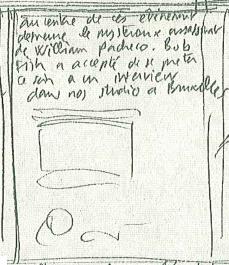 au centre de ces événement
demeure le mystérieux assassinat
de William Pacheco. Bob
Fish a accepté de se prêter
ce soir a un interview
dans nos studio a Bruxelles